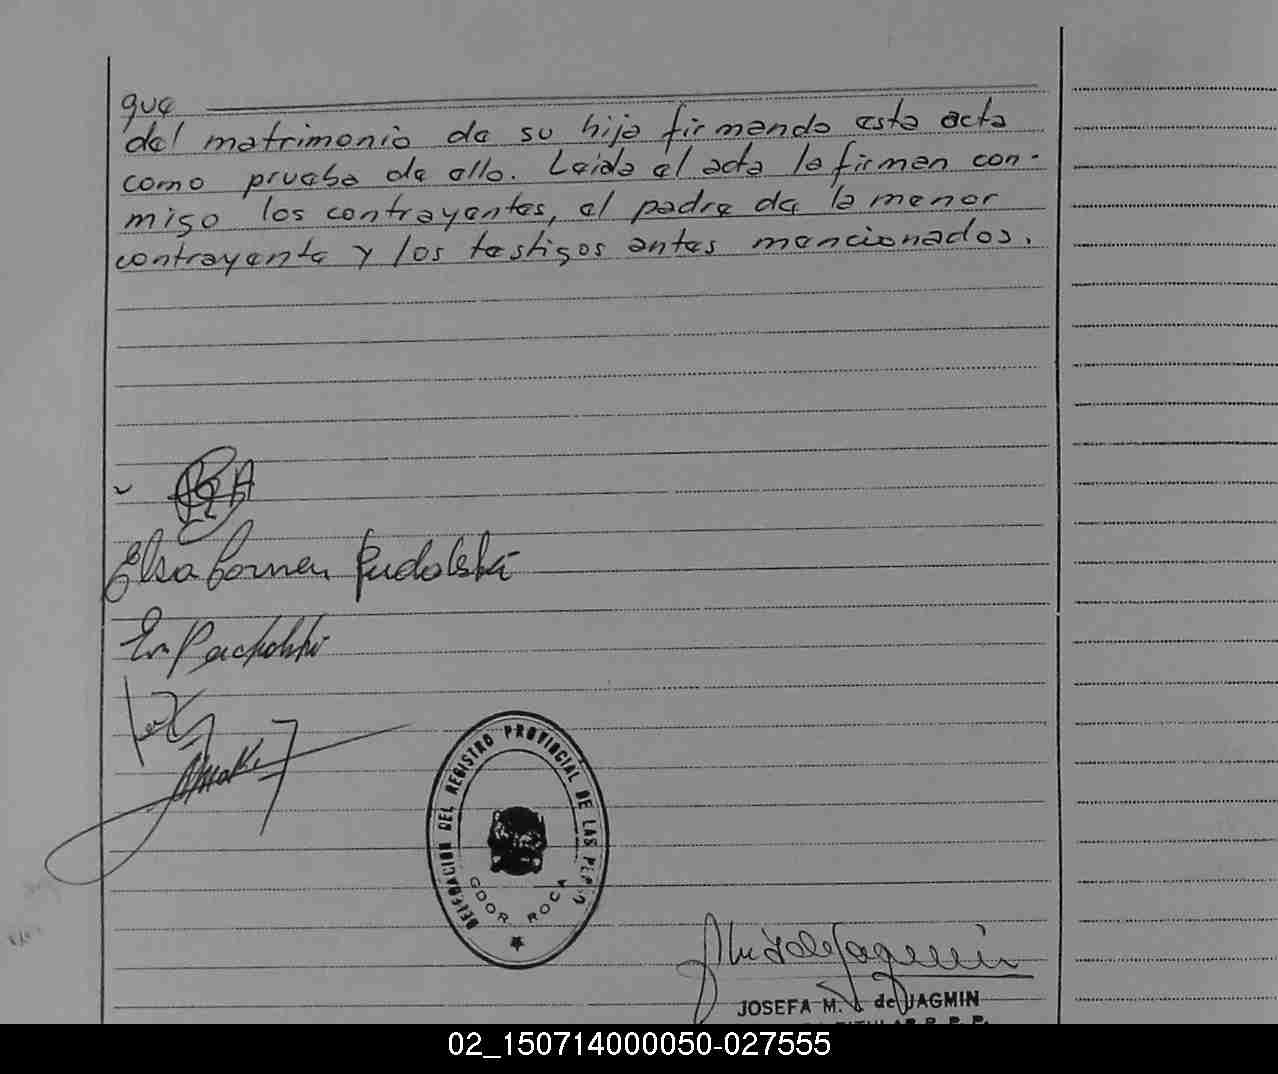 que
del matrimonio de su hija firmando esta acta
como prueba de ello. Leida el acta la firman con-
migo los contrayentes, el padre de la menor
contrayente y los testigos antes mencionados.
Elsa Carmen Pudolski
DEL REGISTRO PROVINCIAL DE LAS PERS
GDOR ROCA
JOSEFA M. de JAGMIN
02_150714000050-027555